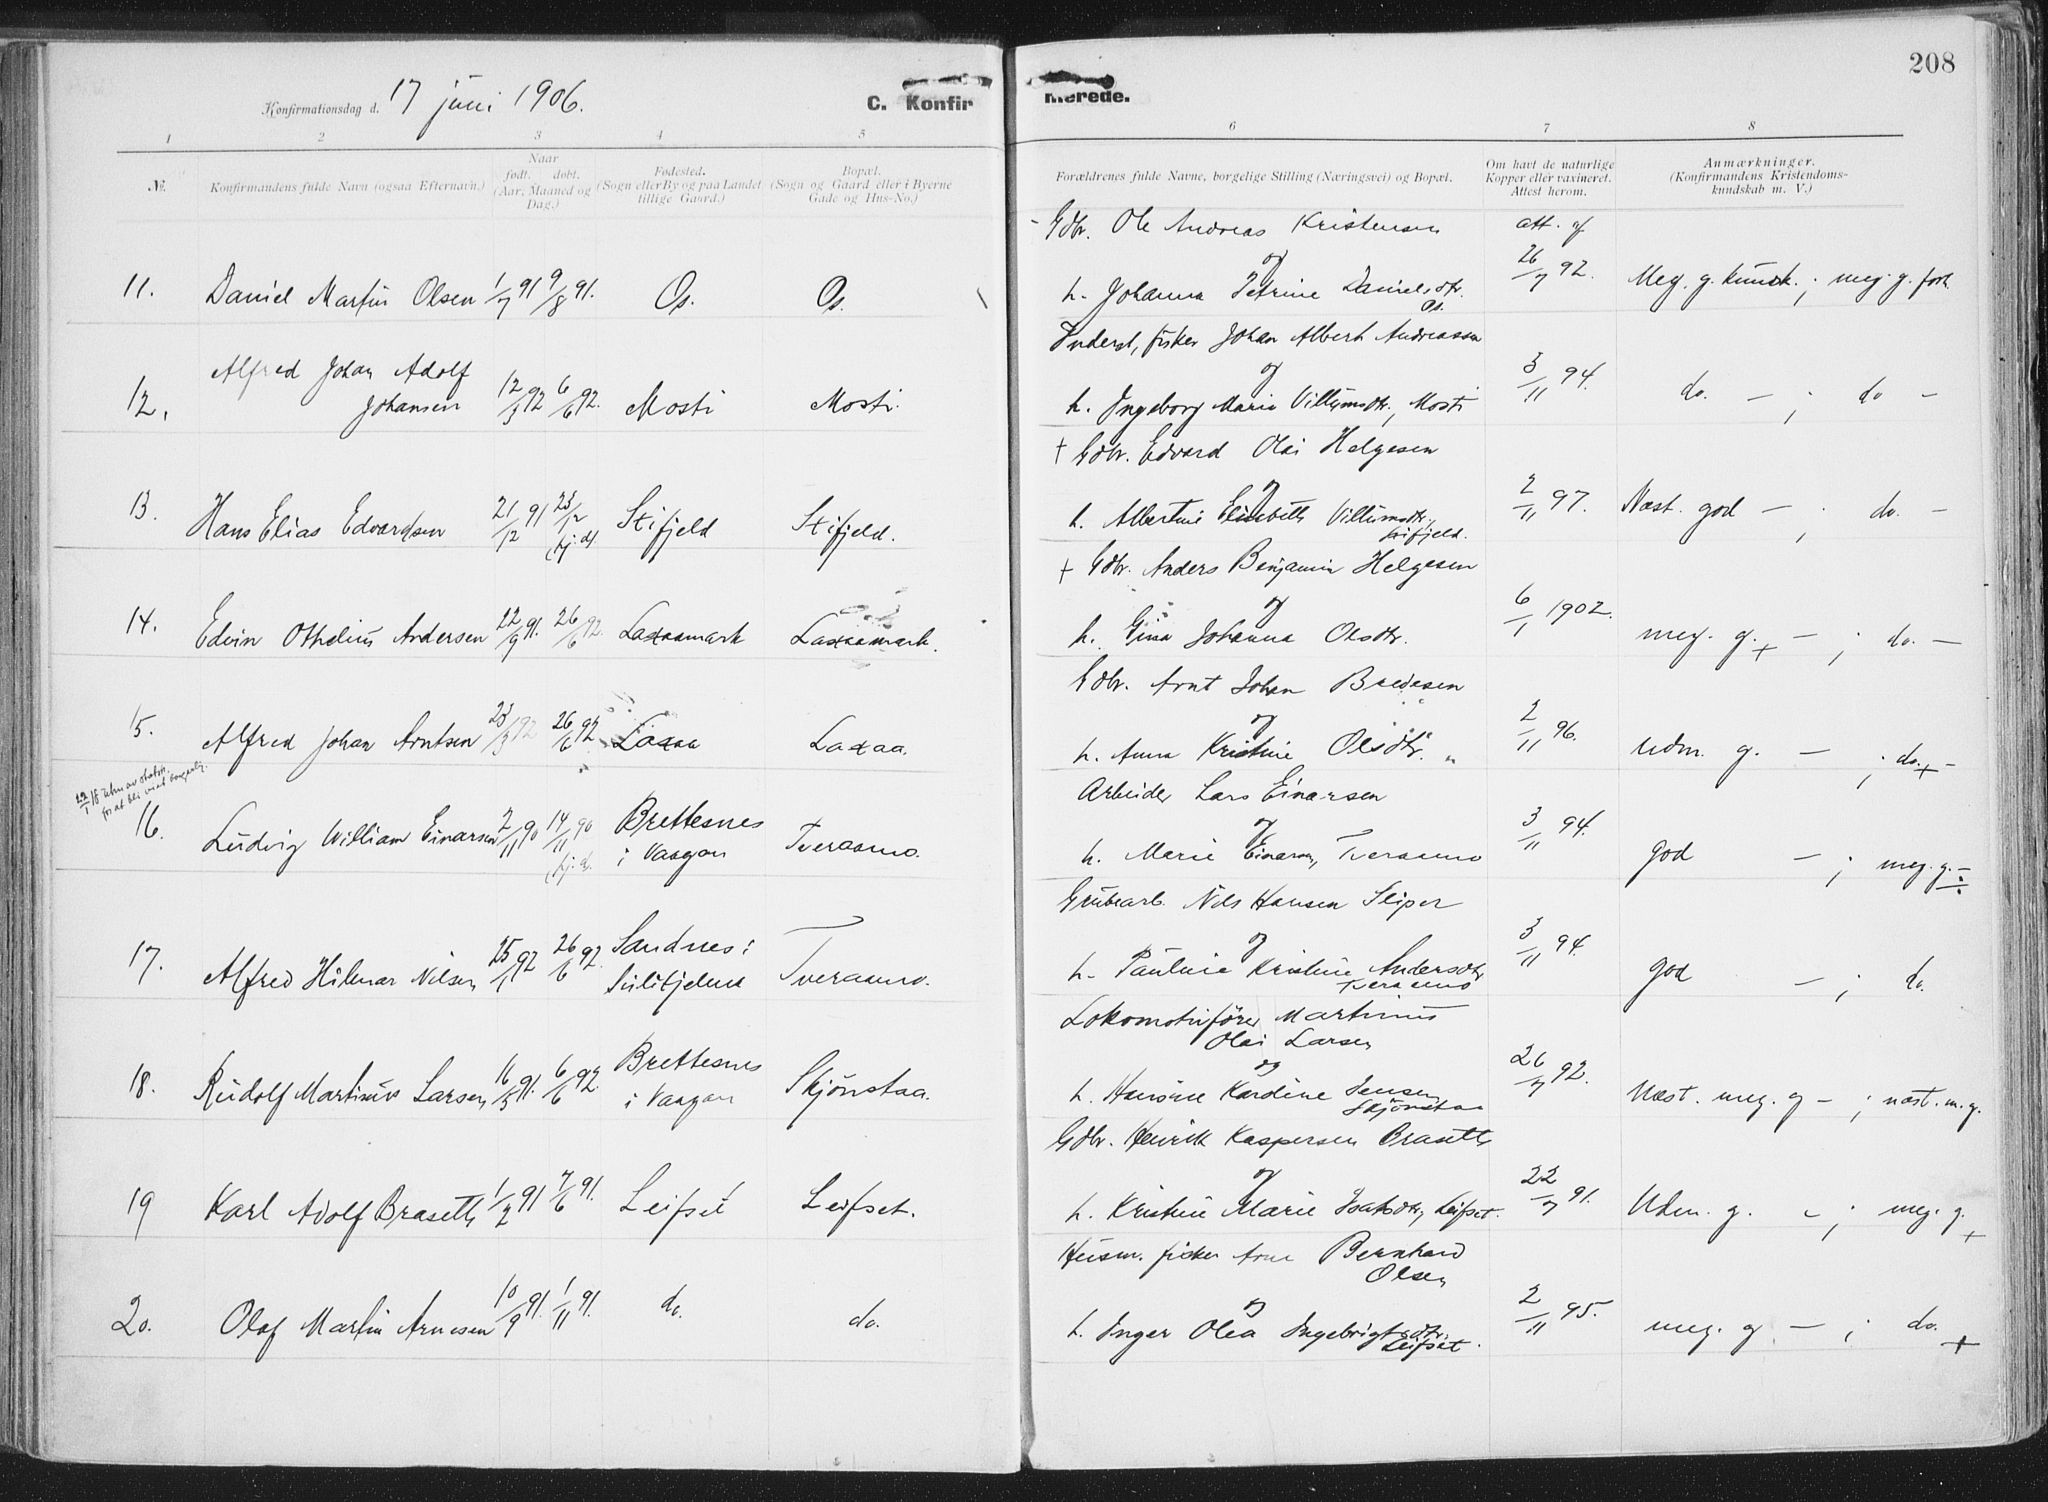 208
Konfirmationsdag d. 17 juni 1906.
C. Konfirmerede.
1 2 3 4 5 6 7 8
№. Konfirmandens fulde Navn (ogsaa Efternavn.) Naar født. døbt. (Aar, Maaned og Dag.) Fødested. (Sogn eller By og paa Landet tillige Gaard.) Bopæl. (Sogn og Gaard eller i Byerne Gade og Hus-No.) Forældrenes fulde Navne, borgelige Stilling (Næringsvei) og Bopæl. Om havt de naturlige Kopper eller vaxineret. Attest herom. Anmærkninger. (Konfirmandens Kristendomskundskab m. V.)
Gdbr. Ole Andreas Kristensen att. af
og
11. Daniel Martin Olsen 1/7 91 9/8 91. Os. Os. h. Johanna Petrine Danielsdtr. Os. 26/7 92. Meg. g. kundsk. ; meg. g. forh.
Inderst, fisker Johan Albert Andreassen
og
12. Alfred Johan Adolf Johansen 12/3 92 6/6 92. Mosti Mosti. h. Ingeborg Marie Villumsdtr., Mosti 3/11 94. do. – ; do –
+ Gdbr. Edvard Olai Helgesen
og
13. Hans Elias Edvardsen 21/12 91 23/12 (hj. d) Stifjeld Stifjeld. h. Albertine Elisebeth Villumsdtr., Stifjeld. 2/11 97. Næst. god – ; do. –
+ Gdbr. Anders Benjamin Helgesen
og
14. Edvin Othelius Andersen 22/9 91. 26/6 92. Laxaamark Laxaamark. h. Gina Johanna Olsdtr. 6/1 1902. meg. g. + – ; do. –
Gdbr. Arnt Johan Bredesen
og
15. Alfred Johan Arntsen 23/3 92 26/6 92. Laxaa Laxaa. h. Anna Kristine Olsdtr. " 2/11 96. udm. g. – ; do. + –
Arbeider Lars Einarsen
og
16. Ludvig William Einarsen 7/11 90 14/11 90 (hj. d. Brettesnes i Vaagan Tveraamo. h. Marie Einarsen, Tveraamo 3/11 94. god – ; meg. g. –
Grubearb. Nils Hansen Sliper
og
17. Alfred Hilmar Nilsen 25/1 92 26/6 92. Sandnes i Sulitjelma Tveraamo. h. Pauline Kristine Andersdtr Tveraamo 3/11 94. god – ; do.
Lokomotivfører Martinus Olai Larsen
og
18. Rudolf Martinus Larsen 16/5 91. 6/6 92. Brettesnes i Vaagan Skjönstaa. h. Hansine Kardine Jensen, Skjönstaa 26/7 92. Næst. meg. g – ; næst. m. g.
Gdbr. Henrik Kaspersen Braseth
og
19 Karl Adolf Braseth 1/2 91 7/6 91. Leifset Leifset. h. Kristine Marie Isaksdtr, Leifset. 22/7 91. Udm. g. – ; meg. g. +
Husm. fisker Arne Bernhard Olsen
og
20. Olaf Martin Arnesen 10/9 91. 1/11 91. do. do. h. Inger Olea Ingebrigtsdtr. Leifset. 2/11 95. meg. g – ; do. +